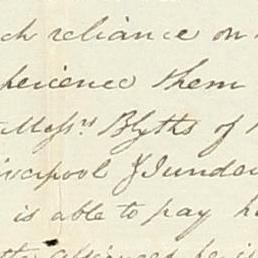 ch reliance on
perience them
Mess.rs Blyths of
iverpool
is able to pay h